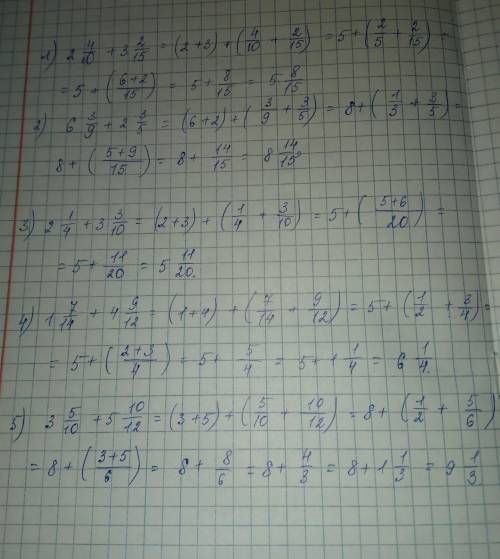 1) 2 4/10 + 3 2/15 = (2+3) + (4/10 + 2/15) = 5 + (2/5 + 2/15) =
= 5 + (6+2/15) = 5 + 8/15 = 5 8/15
2) 6 3/9 + 2 3/5 = (6+2) + (3/9 + 3/5) = 8 + (1/3 + 3/5) =
8 + (5+9/15) = 8 + 14/15 = 8 14/15.
3) 2 1/4 + 3 3/10 = (2+3) + (1/4 + 3/10) = 5 + (5+6/20) =
= 5 + 11/20 = 5 11/20.
4) 1 7/14 + 4 9/12 = (1+4) + (7/14 + 9/12) = 5 + (1/2 + 3/4) =
= 5 + (2+3/4) = 5 + 5/4 = 5 + 1 1/4 = 6 1/4.
5) 3 5/10 + 5 10/12 = (3+5) + (5/10 + 10/12) = 8 + (1/2 + 5/6)
= 8 + (3+5/6) = 8 + 8/6 = 8 + 4/3 = 8 + 1 1/3 = 9 1/3.